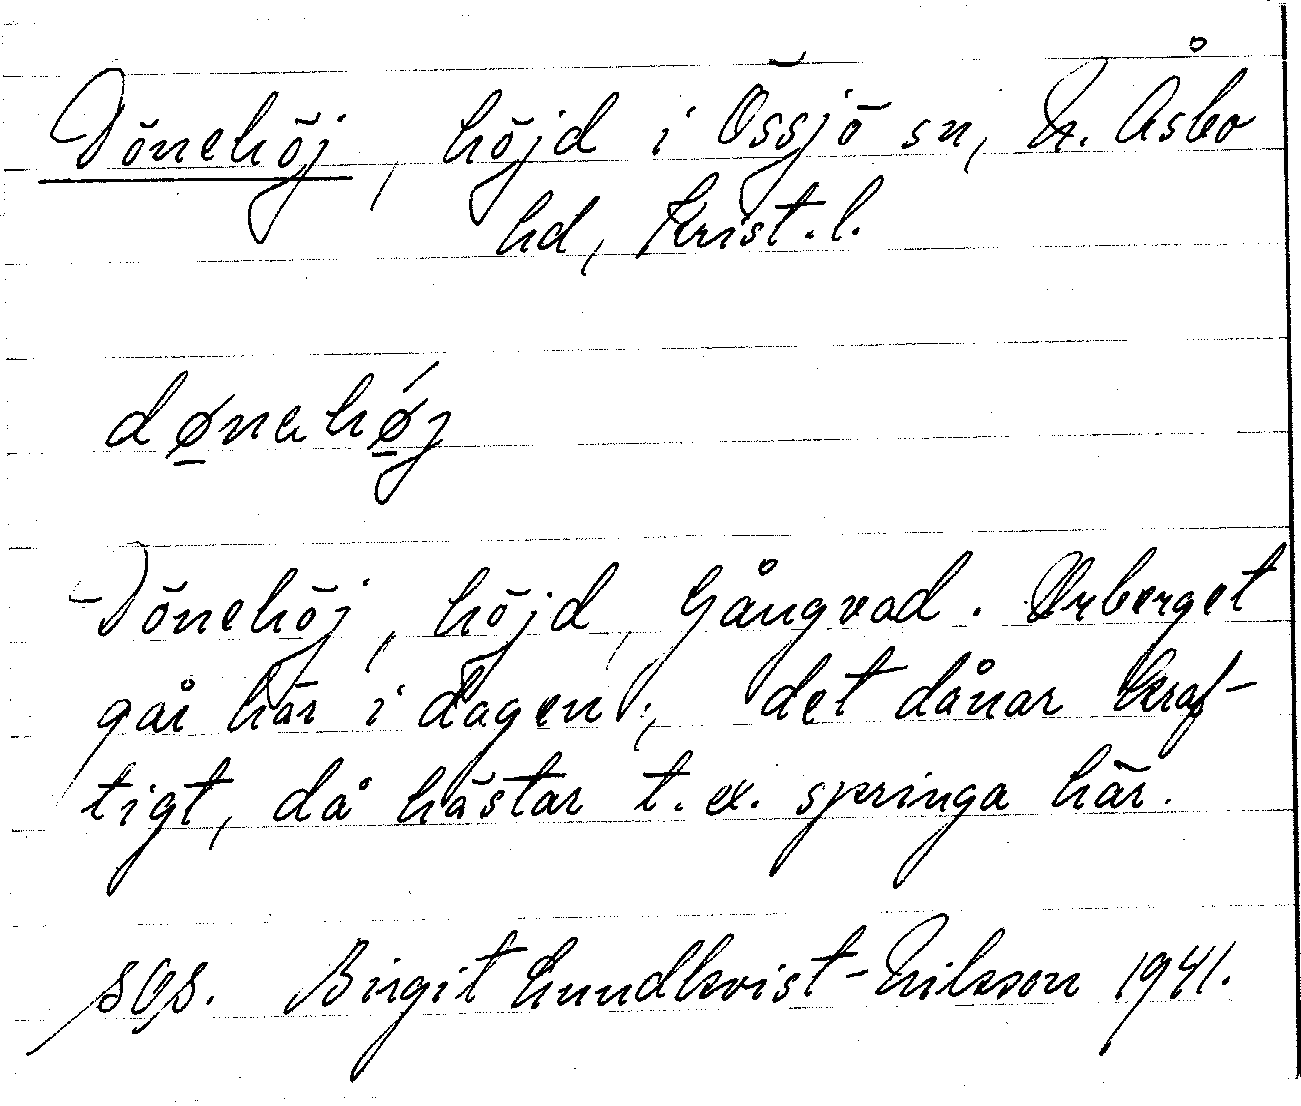 Dönehöj, höjd i Össjö sn, N. Åsbo
hd, Krist. l.
dønahǿj
Dönehöj, höjd, Gångvad. Urberget
går här i dagen; det dånar kraf-
tigt, då hästar t.ex. springa här.
Birgit Lundkvist-Nilsson 1941.